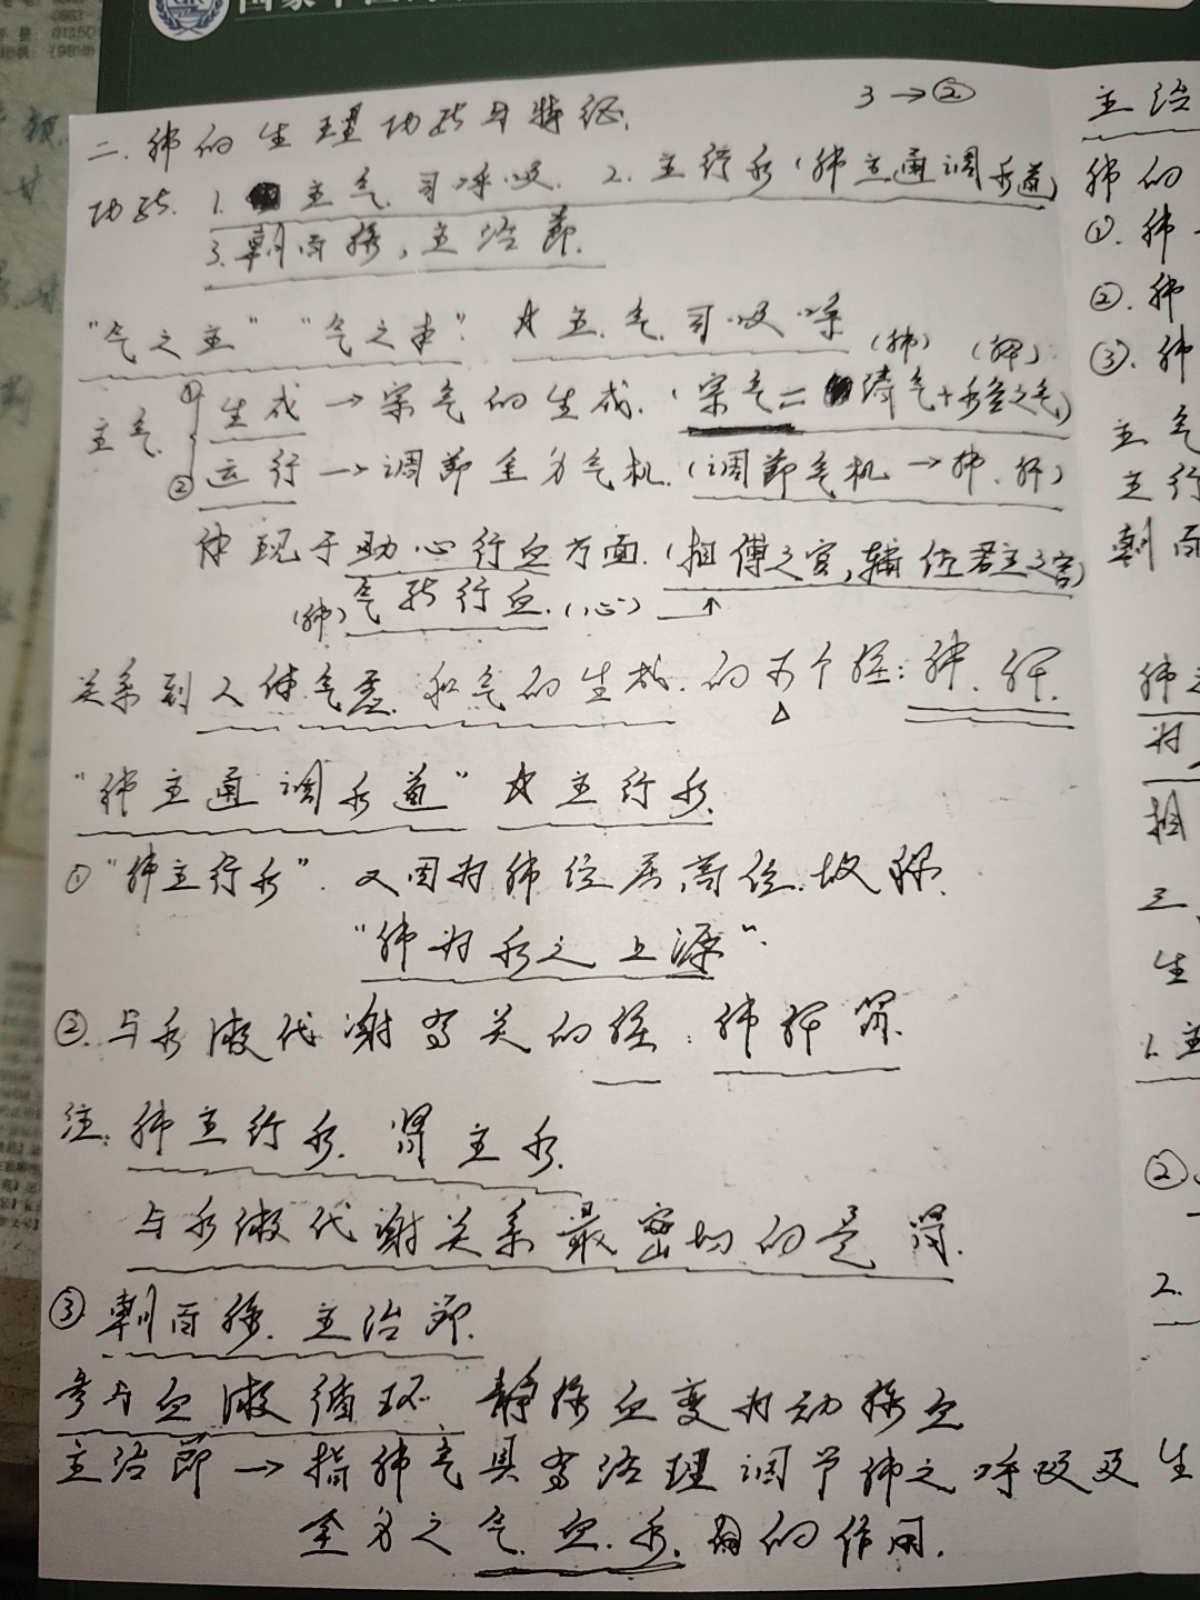 3→②
二.肺的生理功能与特征.
功能. 1. 主气.司呼吸. 2. 主行水(肺主通调水道)
3.朝百脉,主治节.
"气之主" "气之本": ☆主.气.司.吸.呼
(肺) (脾)
主气 ①生成→宗气的生成.(宗气=清气+水谷之气)
②运行→调节全身气机.(调节气机→肺.肝)
体现于助心行血方面.(相傅之官,辅佐君主之官)
(肺)气能行血.(心) ↑
关系到人体气虚.和气的生成.的两个脏:肺.脾.
"肺主通调水道" ☆主行水.
①"肺主行水". 又因为肺位居高位.故称.
"肺为水之上源".
②.与水液代谢有关的脏:肺脾肾.
注:肺主行水.肾主水.
与水液代谢关系最密切的是肾.
③朝百脉.主治节.
参与血液循环 静脉血变为动脉血
主治节→指肺气具有治理调节肺之呼吸及
全身之气.血.水.的作用.
主治
肺的
①.肺
②.肺
③.肺
主气
主行
朝百
肺
为
相
三.
生
1.主
②
2.
生